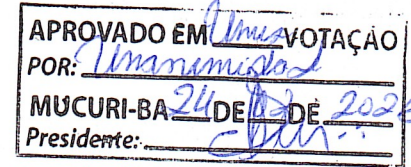 APROVADO EM Unica VOTAÇÃO
POR: Unanimidad
MUCURI-BA 24 DE 02 DE 2026
Presidente: